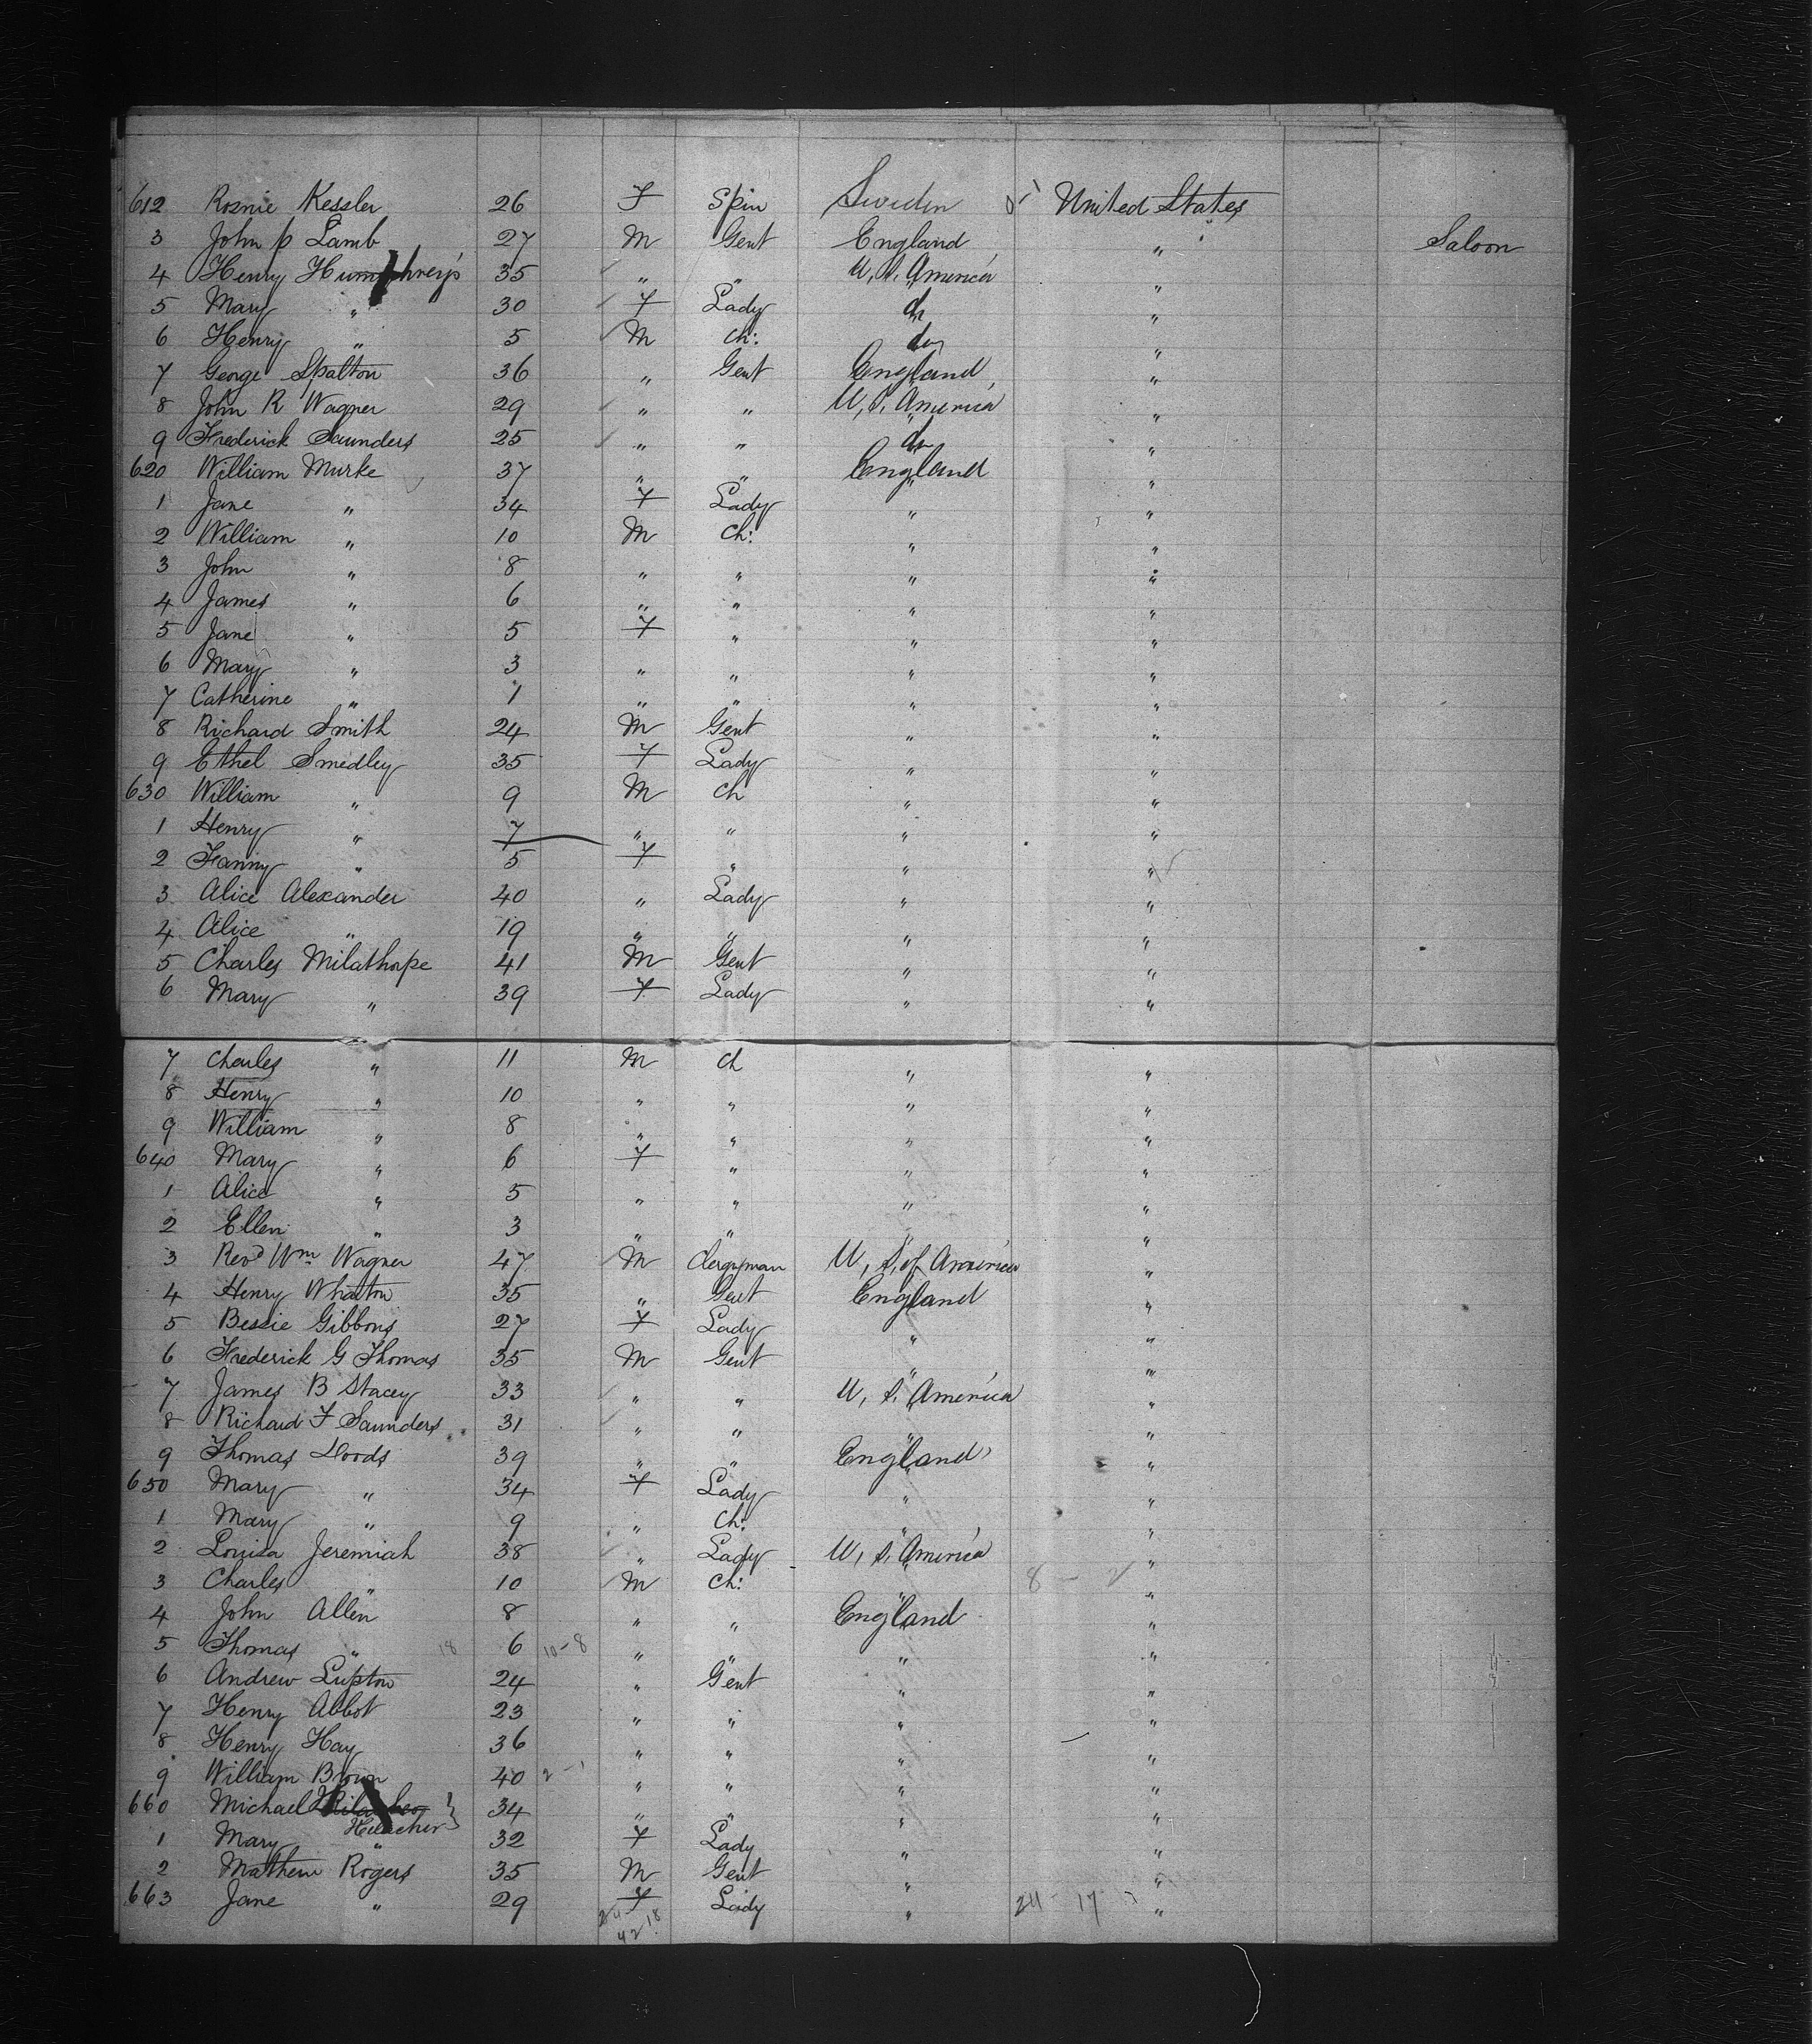 612 Rosnie Kessler 26 F Spin Sweden United States
3 John P Lamb 27 M Gent England " Saloon
4 Henry Humphreys 35 " " U, S, America "
5 Mary " 30 F Lady do "
6 Henry " 5 M Ch: do "
7 George Spalton 36 " Gent England "
8 John R Wagner 29 " " U, S, America "
9 Frederick Saunders 25 " " do "
620 William Murke 37 " " England "
1 Jane " 34 F Lady " "
2 William " 10 M Ch: " "
3 John " 8 " " " "
4 James " 6 " " " "
5 Jane " 5 F " " "
6 Mary " 3 " " " "
7 Catherine " 1 " " " "
8 Richard Smith 24 M Gent " "
9 Ethel Smedley 35 F Lady " "
630 William " 9 M Ch " "
1 Henry " 7 " " " "
2 Fanny " 5 F " " "
3 Alice Alexander 40 " Lady " "
4 Alice " 19 " " " "
5 Charles Milathorpe 41 M Gent " "
6 Mary " 39 F Lady " "
7 Charles " 11 M Ch " "
8 Henry " 10 " " " "
9 William " 8 " " " "
640 Mary " 6 F " " "
1 Alice " 5 " " " "
2 Ellen " 3 " " " "
3 Revd Wm Wagner 47 M Clergyman U, S, of America "
4 Henry Whatton 35 " Gent England "
5 Bessie Gibbons 27 F Lady " "
6 Frederick G Thomas 35 M Gent " "
7 James B Stacey 33 " " U, S, America "
8 Richard F Saunders 31 " " " "
9 Thomas Doods 39 " " England "
650 Mary " 34 F Lady " "
1 Mary " 9 " Ch: " "
2 Louisa Jeremiah 38 " Lady U, S, America "
3 Charles " 10 M Ch: " 8 - 2 "
4 John Allen 8 " " England "
5 Thomas " 18 6 10-8 " " " "
6 Andrew Lupton 24 " Gent " "
7 Henry Abbot 23 " " " "
8 Henry Hay 36 " " " "
9 William Brown 40 2 - 1 " " " "
660 Michael 34 " " " "
1 Mary " 32 F Lady " "
2 Mathew Rogers 35 M Gent " "
663 Jane " 29 F Lady " 24 - 17 "
24 18
42